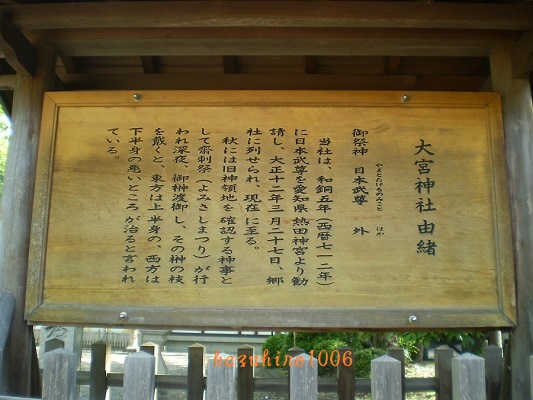 大宮神社由緒
御祭神　日本武尊　外
やまとたけるのみこと　ほか
当社は、和銅五年(西暦七一二年)
に日本武尊を愛知県熱田神宮より勧
請し、大正十二年三月二十七日、郷
社に列せられ、現在に至る。
秋には旧神領地を確認する神事と
して齋刺祭(よみさしまつり)が行
われ深夜、御榊渡御し、その榊の枝
を戴くと、東方は上半身の、西方は
下半身の悪いところが治ると言われ
ている。
kazuhino1006